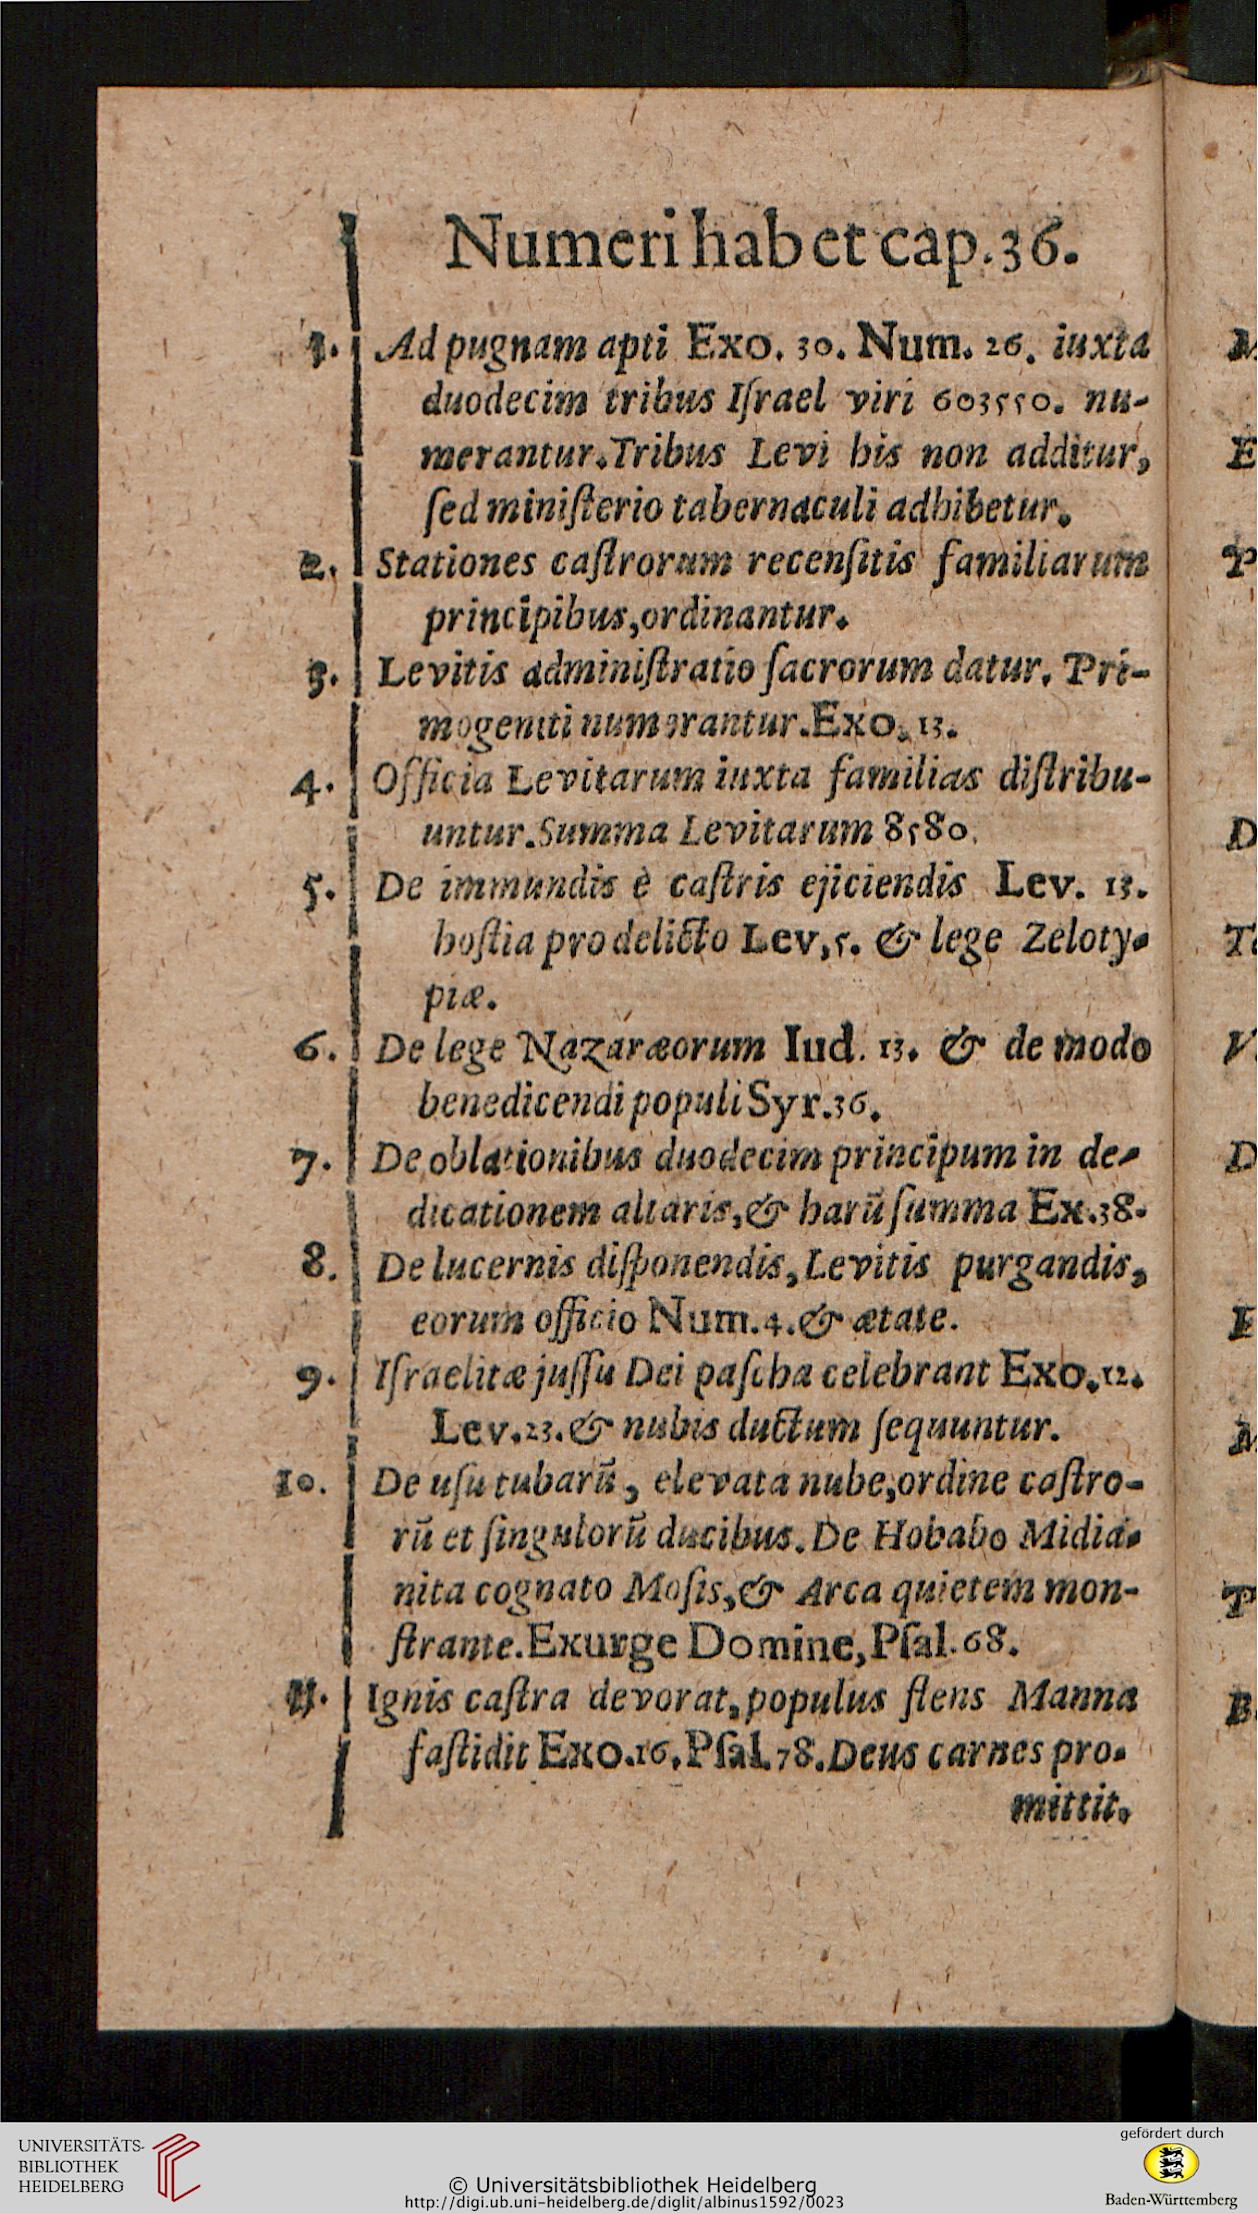 Numeri habet cap. 36.
1. Ad pugnam apti Exo. 30. Num. 26. iuxta
duodecim tribus Iſrael viri 603550. nu-
merantur. Tribus Levi his non additur,
ſed miniſterio tabernaculi adhibetur.
2. Stationes caſtrorum recenſitis familiarum
principibus, ordinantur.
3. Levitis adminiſtratio ſacrorum datur. Pri-
mogeniti numerantur. Exo. 13.
4. Officia Levitarum iuxta familias diſtribu-
untur. Summa Levitarum 8580.
5. De immundis è caſtris ejiciendis Lev. 13.
hoſtia pro delicto Lev, 5. & lege Zeloty-
piæ.
6. De lege Nazaræorum Iud. 13. & de modo
benedicendi populi Syr. 36.
7. De oblationibus duodecim principum in de-
dicationem altaris, & harū ſumma Ex. 38.
8. De lucernis diſponendis, Levitis purgandis,
eorum officio Num. 4. & ætate.
9. Iſraelitæ juſſu Dei paſcha celebrant Exo. 12.
Lev. 23. & nubis ductum ſequuntur.
10. De uſu tubarū, elevata nube, ordine caſtro-
rū et ſingulorū ducibus. De Hobabo Midia-
nita cognato Moſis, & Arca quietem mon-
ſtrante. Exurge Domine, Pſal. 68.
11. Ignis caſtra devorat, populus flens Manna
faſtidit Exo. 16. Pſal. 78. Deus carnes pro-
mittit.
M
E
P
D
T
V
D
E
M
T
B
UNIVERSITÄTS-
BIBLIOTHEK
HEIDELBERG
© Universitätsbibliothek Heidelberg
http://digi.ub.uni-heidelberg.de/diglit/albinus1592/0023
gefördert durch
Baden-Württemberg